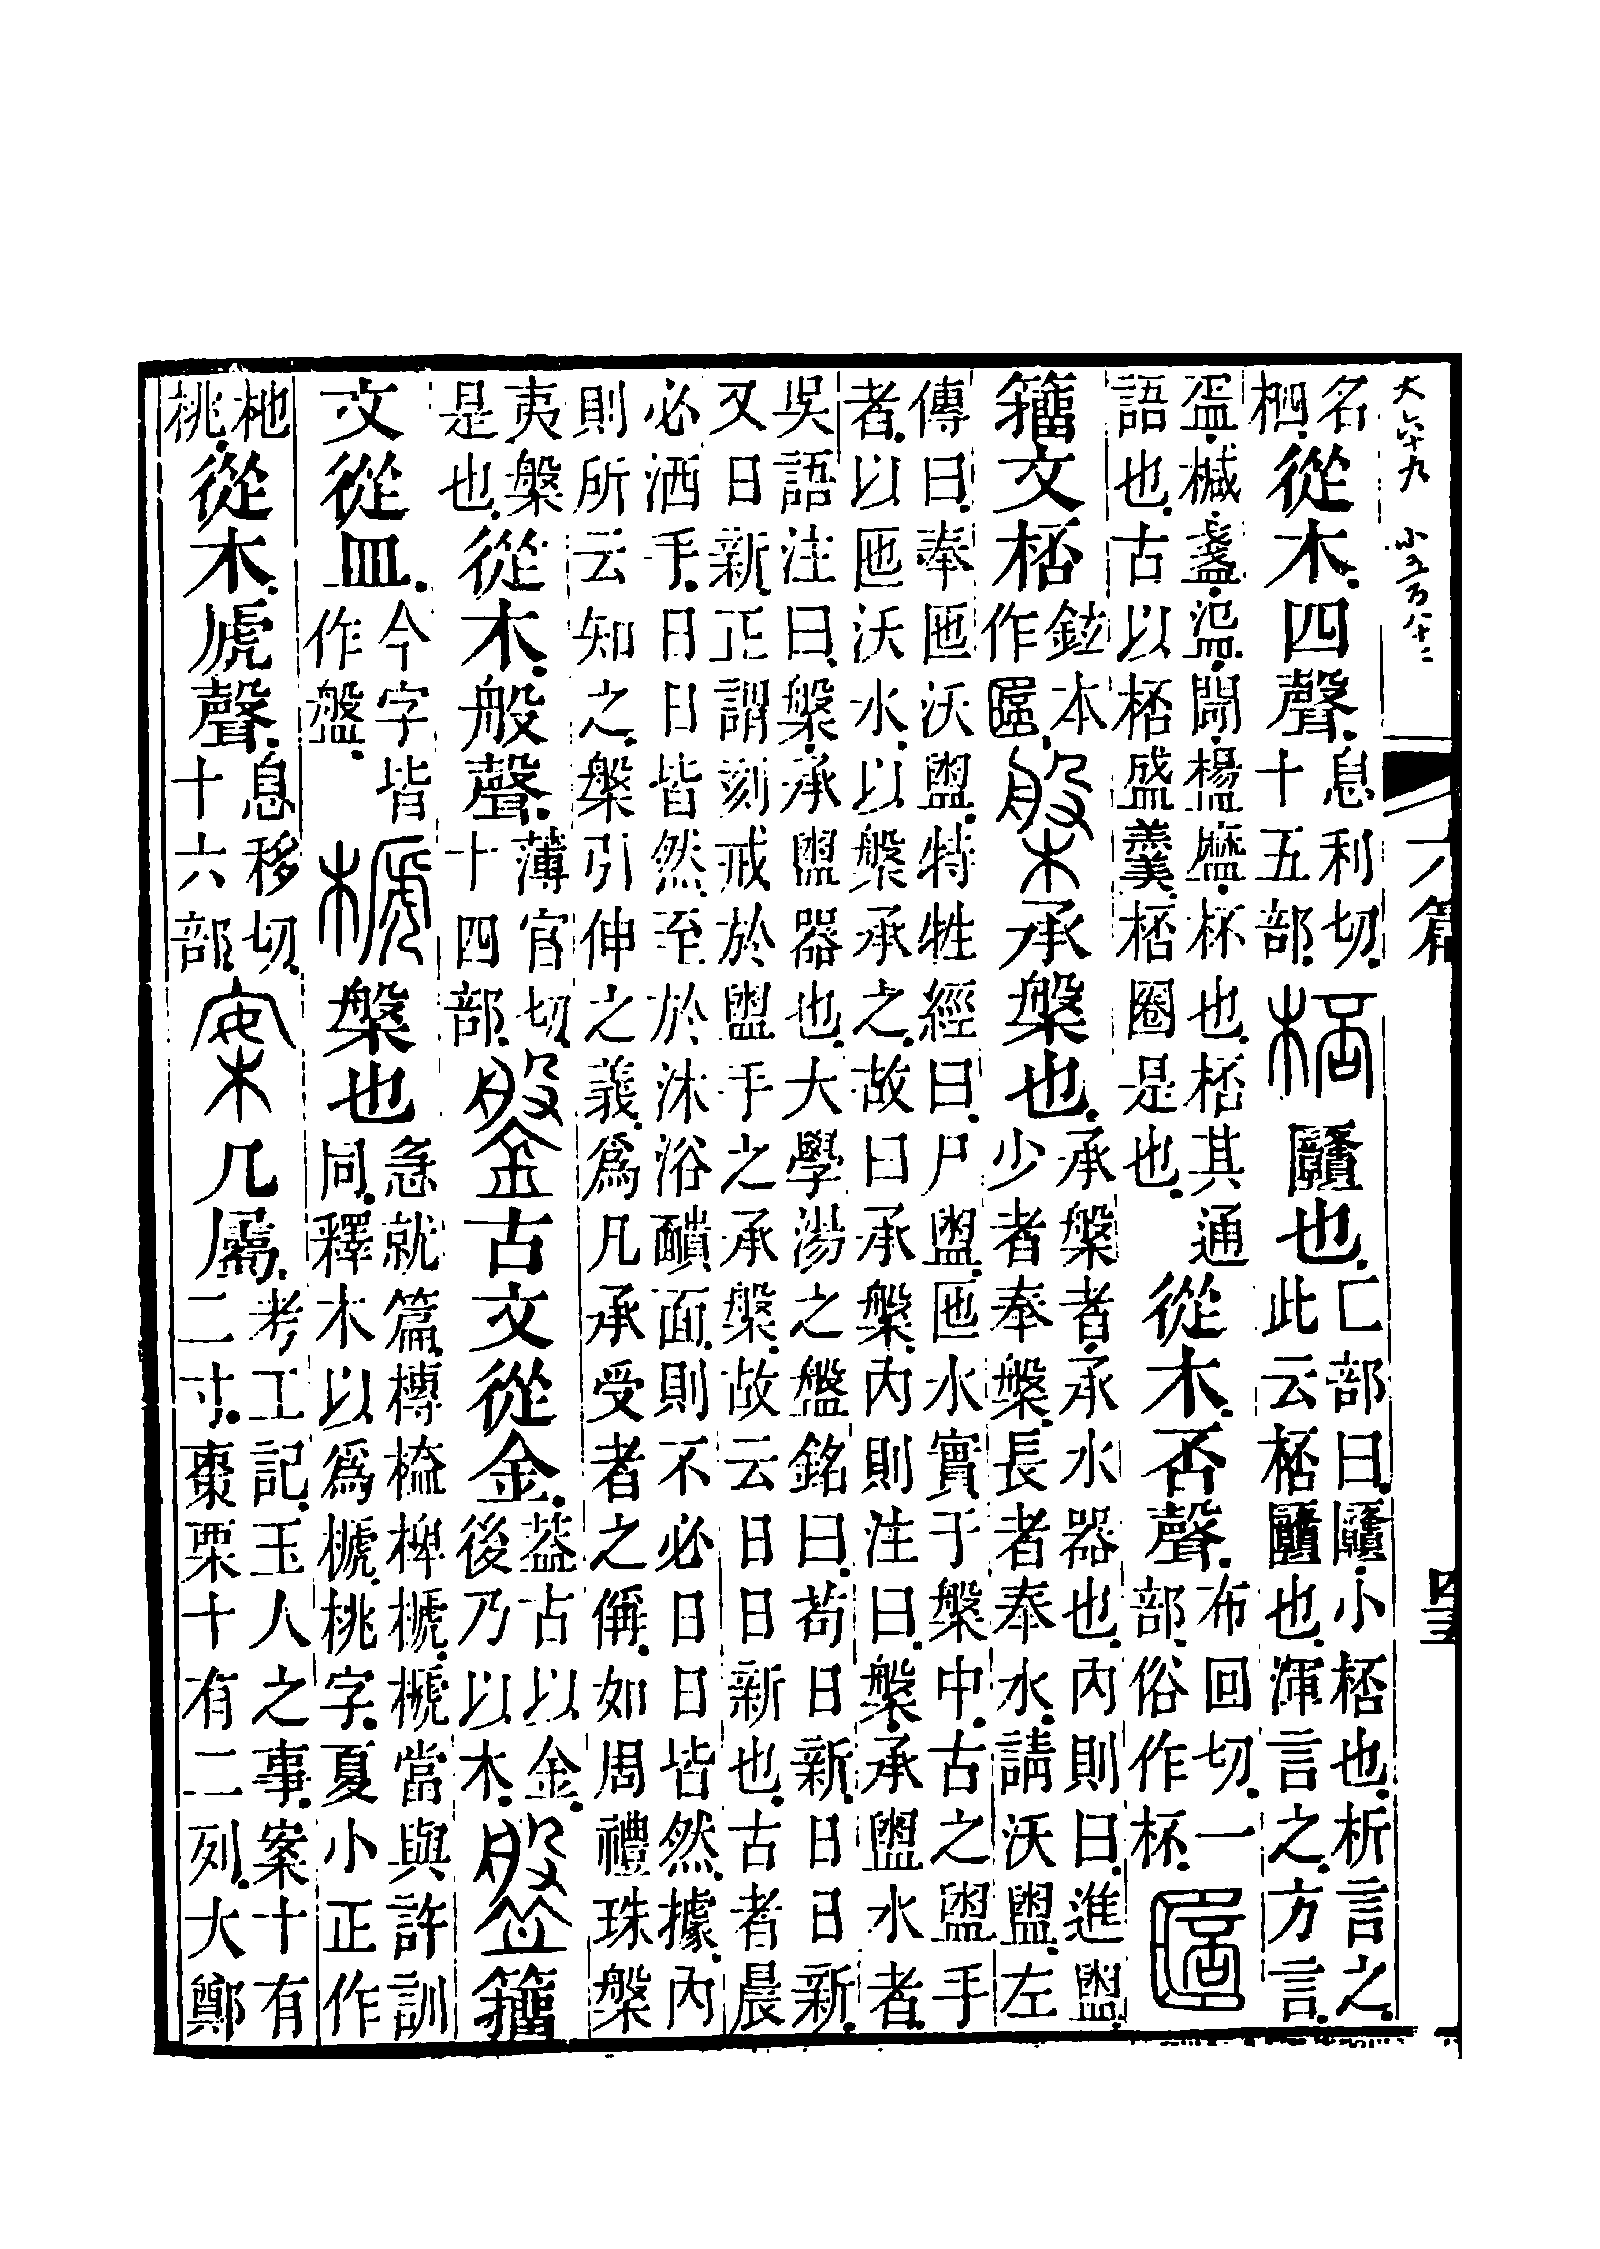 大六十九　小五百八十二
六篇
四五
名柶.從木.四聲.息利切.十五部.桮㔶也.匚部曰.㔶.小桮也.析言之.此云桮㔶也.渾言之.方言.
盃.椷.盞.𥁓.閜.㯼.𥂓.杯也.桮其通語也.古以桮盛羹.桮圈是也.從木.否聲.布回切.一部.俗作杯.𠥝
籒文桮鉉本作𠥝.槃承槃也.承槃者.承水器也.內則曰.進盥.少者奉槃.長者奉水.請沃盥.左
傳曰.奉匜沃盥.特牲經曰.尸盥.匜水實于槃中.古之盥手者.以匜沃水.以槃承之.故曰承槃.內則注曰.槃.承盥水者.
吳語注曰.槃.承盥器也.大學湯之盤銘曰.苟日新.日日新.又日新.正謂刻戒於盥手之承槃.故云日日新也.古者晨
必洒手.日日皆然.至於沐浴靧面.則不必日日皆然.據內則所云知之.槃引伸之義.爲凡承受者之偁.如周禮珠槃
夷槃是也.從木.般聲.薄官切.十四部.鎜古文從金.葢古以金.後乃以木.盤籒
文從皿.今字皆作盤.榹槃也急就篇.槫榼椑榹.榹當與許訓同.釋木以爲榹.桃字.夏小正作
杝桃.從木.虒聲.息移切.十六部.案几屬.考工記.玉人之事.案十有二寸.棗栗十有二列.大鄭